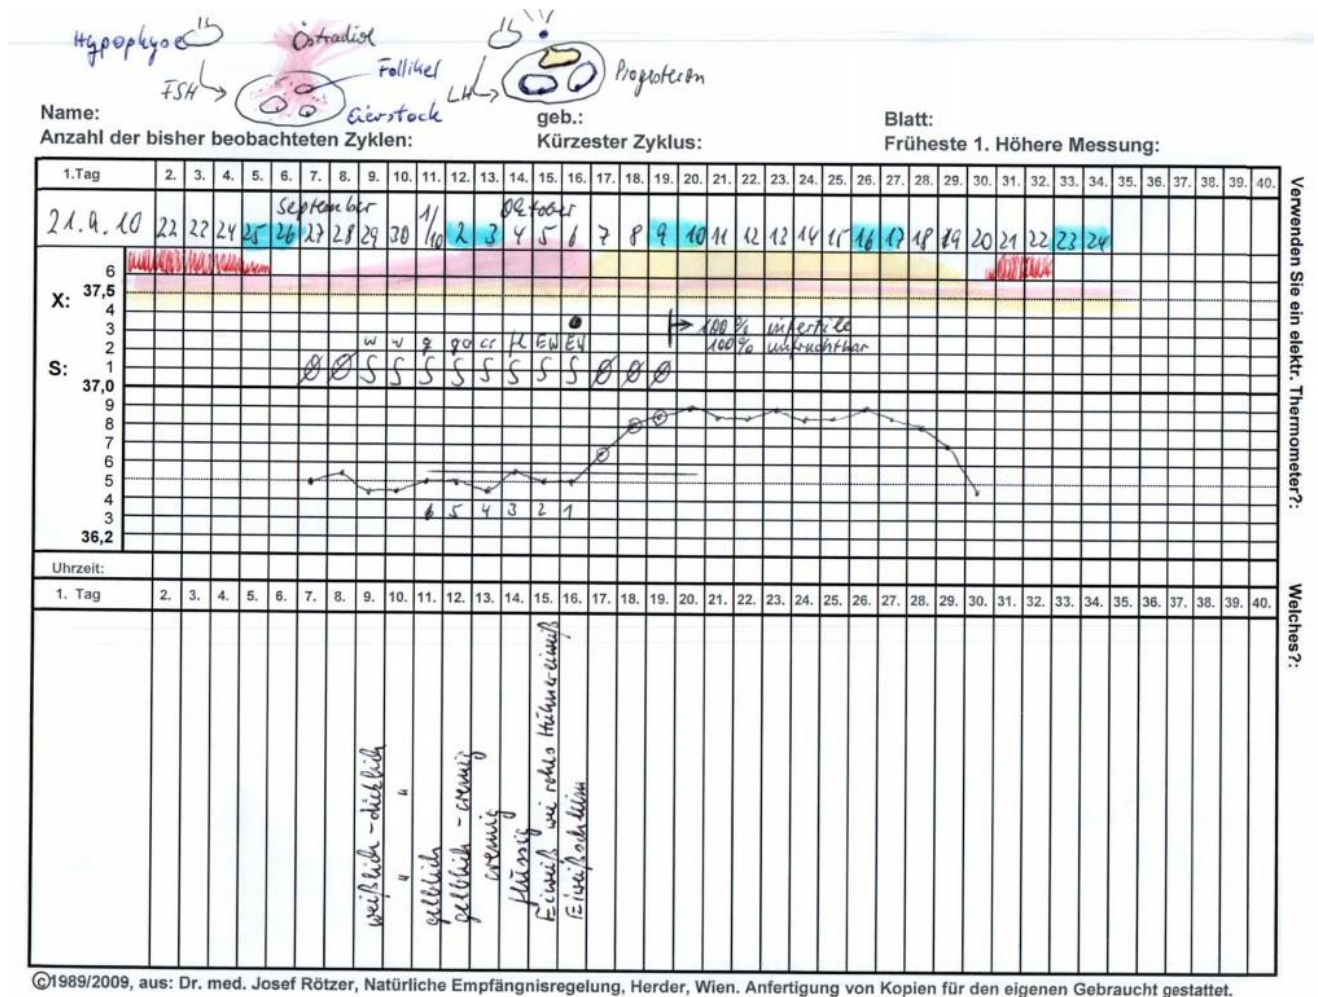 Hypophyse Östradiol
Follikel Progesteron
FSH LH
Eierstock
Name: geb.: Blatt:
Anzahl der bisher beobachteten Zyklen: Kürzester Zyklus: Früheste 1. Höhere Messung:
1.Tag 2. 3. 4. 5. 6. 7. 8. 9. 10. 11. 12. 13. 14. 15. 16. 17. 18. 19. 20. 21. 22. 23. 24. 25. 26. 27. 28. 29. 30. 31. 32. 33. 34. 35. 36. 37. 38. 39. 40.
September Oktober
21.9.10 22 23 24 25 26 27 28 29 30 1/10 2 3 4 5 6 7 8 9 10 11 12 13 14 15 16 17 18 19 20 21 22 23 24
6
X: 37,5
4
3 100% infertile
2 w w g gc cr fl EW EW 100% unfruchtbar
S: 1 Ø Ø S S S S S S S S Ø Ø Ø
37,0
9
8
7
6
5
4
3 6 5 4 3 2 1
36,2
Uhrzeit:
1. Tag 2. 3. 4. 5. 6. 7. 8. 9. 10. 11. 12. 13. 14. 15. 16. 17. 18. 19. 20. 21. 22. 23. 24. 25. 26. 27. 28. 29. 30. 31. 32. 33. 34. 35. 36. 37. 38. 39. 40.
weißlich - dicklich
" "
gelblich
gelblich - cremig
cremig
flüssig
Eiweiß wie rohes Hühnereiweiß
Eiweißschleim
Verwenden Sie ein elektr. Thermometer?:
Welches?:
©1989/2009, aus: Dr. med. Josef Rötzer, Natürliche Empfängnisregelung, Herder, Wien. Anfertigung von Kopien für den eigenen Gebrauch gestattet.